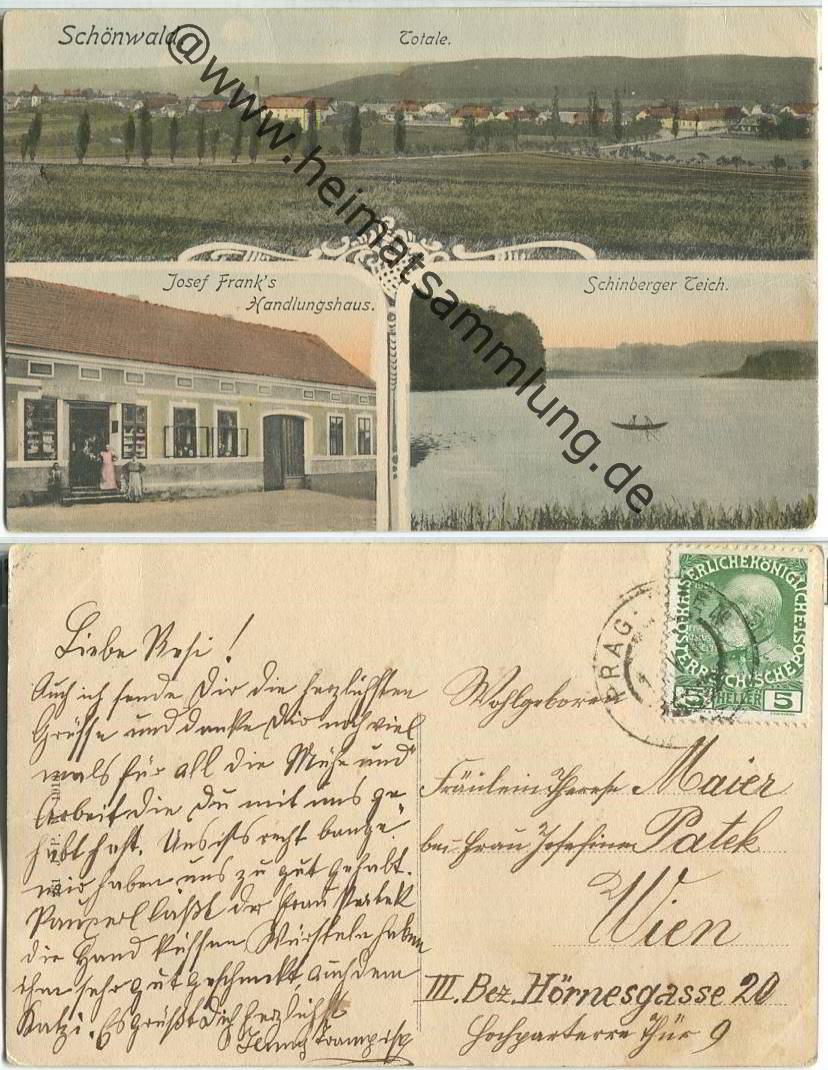 Schönwald.
Totale.
@www.heimatsammlung.de
Josef Frank's
Handlungshaus.
Schinberger Teich.
Liebe Resi!
Auch ich sende Dir die herzlichsten
Grüsse und danke Dir noch viel
mals für all die Mühe und
Arbeit die Du mit uns ge-
habt hast. Uns ists recht bange.
wir haben uns zu gut gehabt.
Pauxerl laßt der Frau Patek
die Hand küssen Würsteln haben
ihm sehr gut geschmekt, auch dem
Katzi. Es grüßt Dich herzlichst
PRAG
KAISERLICHE KÖNIGLICHE
ÖSTERREICHISCHE POST
5 HELLER 5
Wohlgeboren
Fräulein Therese Maier
bei Frau Josefine Patek
Wien
III. Bez. Hörnesgasse 20
Hochparterre Thür 9